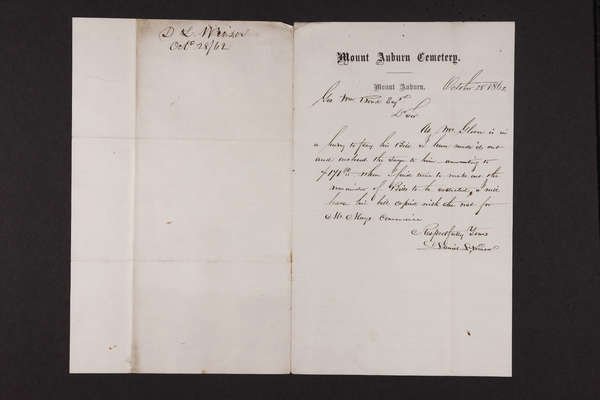 D L Winsor
Oct. 28/62
Mount Auburn Cemetery.
Mount Auburn. October 28 1862
Geo Wm Bond Esqr
D Sir
As Mr Glover is in
a hurry to pay his Bill I have made it out
and enclosed the same to him amounting to
when I find time to make out the
remainder of Bills to be collected, I will
have his bill copied with the rest for
Mr Mays
Respectfully Yours
Daniel L Winsor